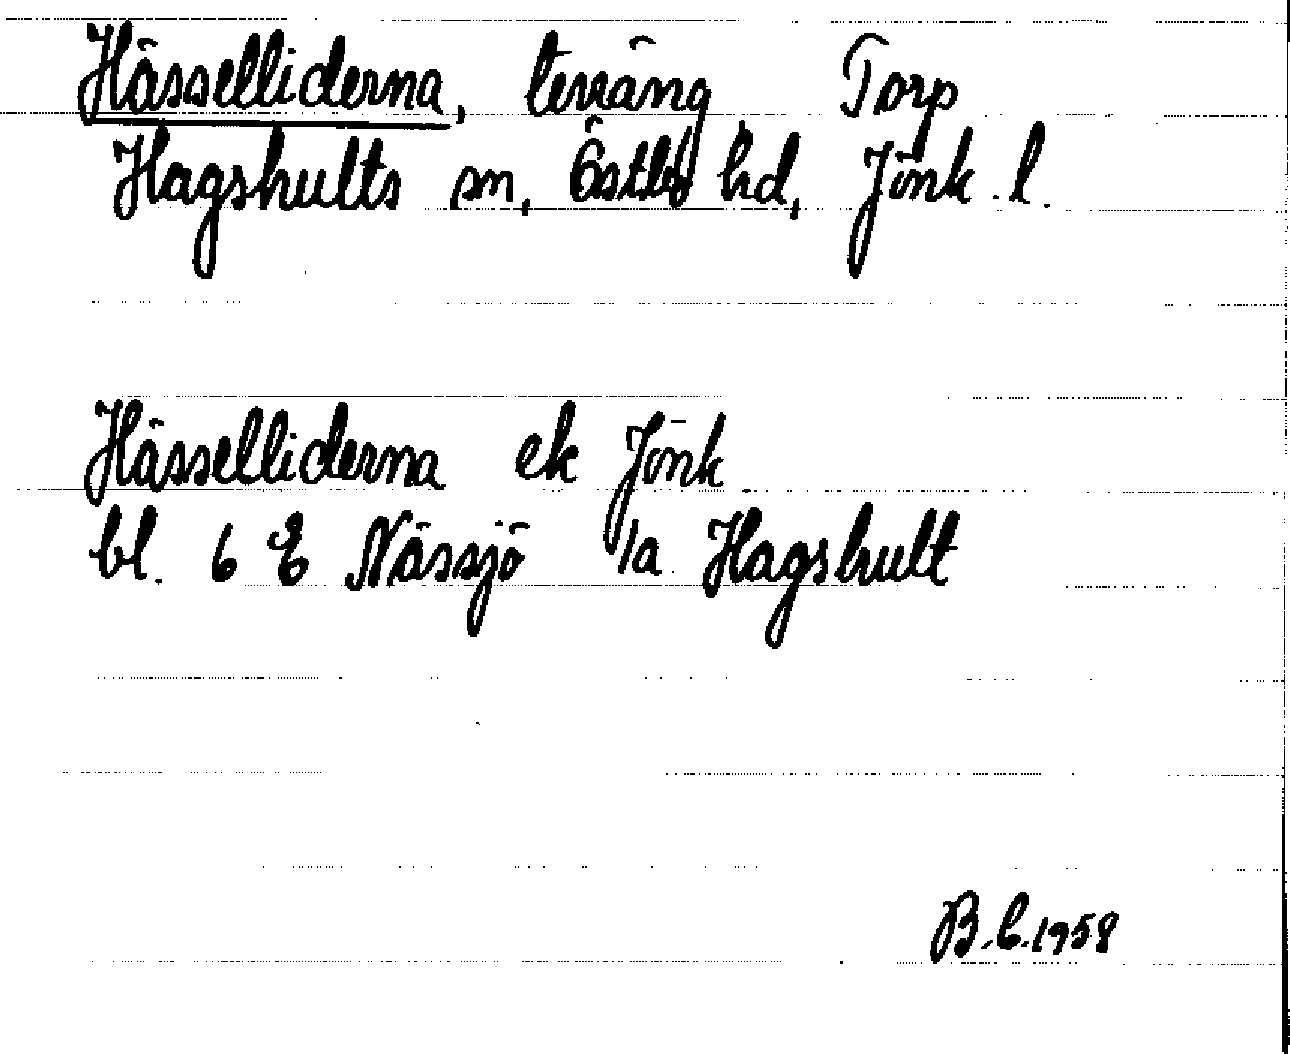 Hässelliderna, terräng Torp
Hagshults sn, Östbo hd, Jönk. l.
Hässelliderna ek Jönk
bl. 6 E Nässjö 1a Hagshult
B.C.1958